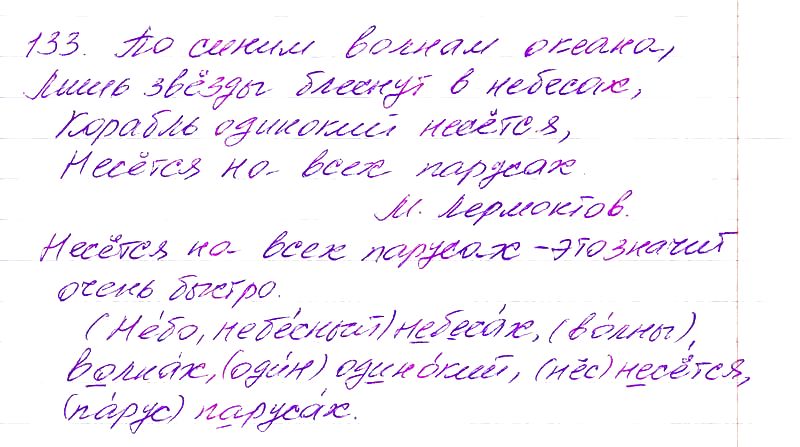 133. По синим волнам океана,
Лишь звёзды блеснут в небесах,
Корабль одинокий несётся,
Несётся на всех парусах.
М. Лермонтов.
Несётся на всех парусах – это значит
очень быстро.
(Не́бо, небе́сный) небеса́х, (во́лны),
волна́х, (оди́н) одино́кий, (нёс) несётся,
(па́рус) паруса́х.